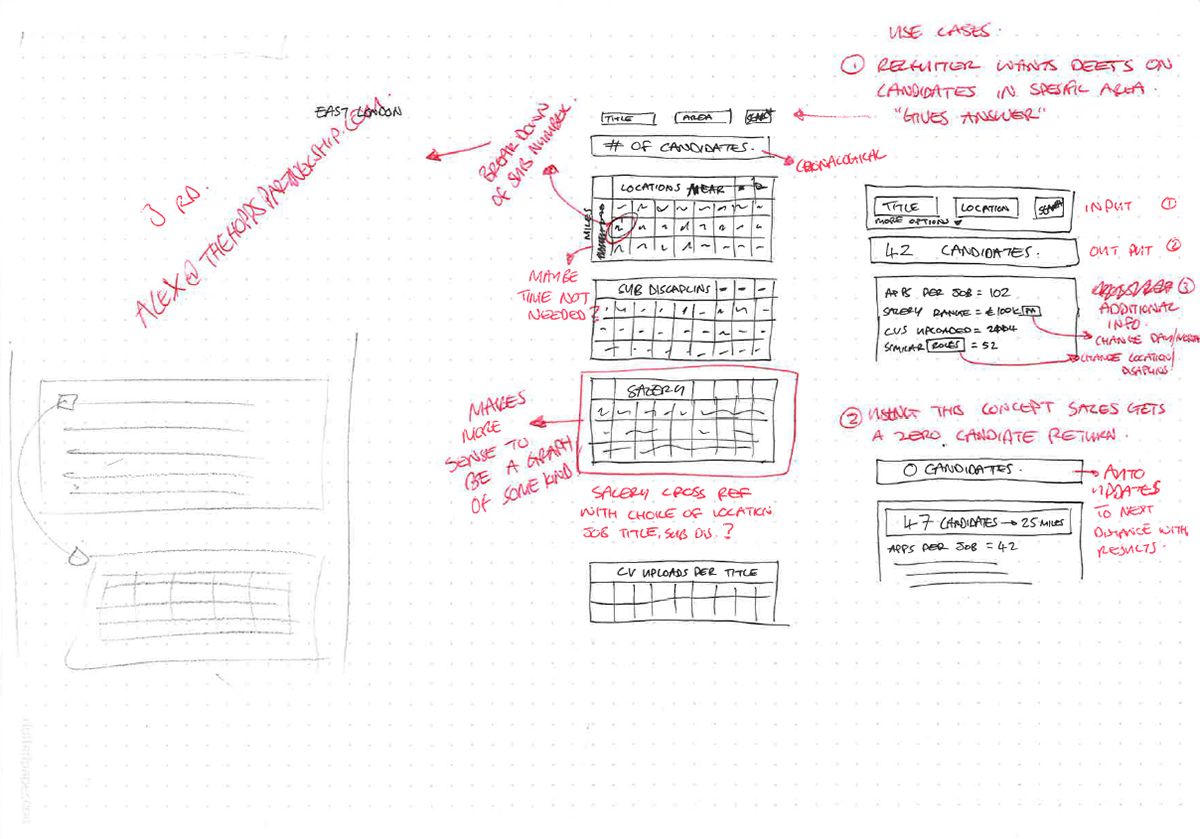 USE CASES.
① RECRUITER WANTS DEETS ON
CANDIDATES IN SPESIFIC AREA.
"GIVES ANSWER"
EAST LONDON
3 RD.
ALEX@THEHOPPSPARTNERSHIP.COM.
BREAK DOWN
OF SUB NUMBER.
TITLE
AREA
SEARCH
# OF CANDIDATES.
CRONALOGICAL
LOCATIONS NEAR
MILES
MAYBE
TIME NOT
NEEDED?
SUB DISCAPLINS
SALERY
MAKES
MORE
SENSE TO
BE A GRAPH
OF SOME KIND
SALERY CROSS REF
WITH CHOICE OF LOCATION
JOB TITLE, SUB DIS.?
CV UPLOADS PER TITLE
TITLE
LOCATION
SEARCH
MORE OPTION
INPUT ①
42 CANDIDATES.
OUT PUT ②
APPS PER JOB = 102
SALERY RANGE = £100K PA
CVS UPLOADED = 2004
SIMILAR ROLES = 52
③
ADDITIONAL
INFO.
CHANGE DAY/
CHANGE LOCATION/
DISAPLINS.
② USING THIS CONCEPT SALES GETS
A ZERO CANDIATE RETURN.
0 CANDIDATES.
AUTO
UPDATES
TO NEXT
DISTANCE WITH
RESULTS.
47 CANDIDATES → 25 MILES
APPS PER JOB = 42